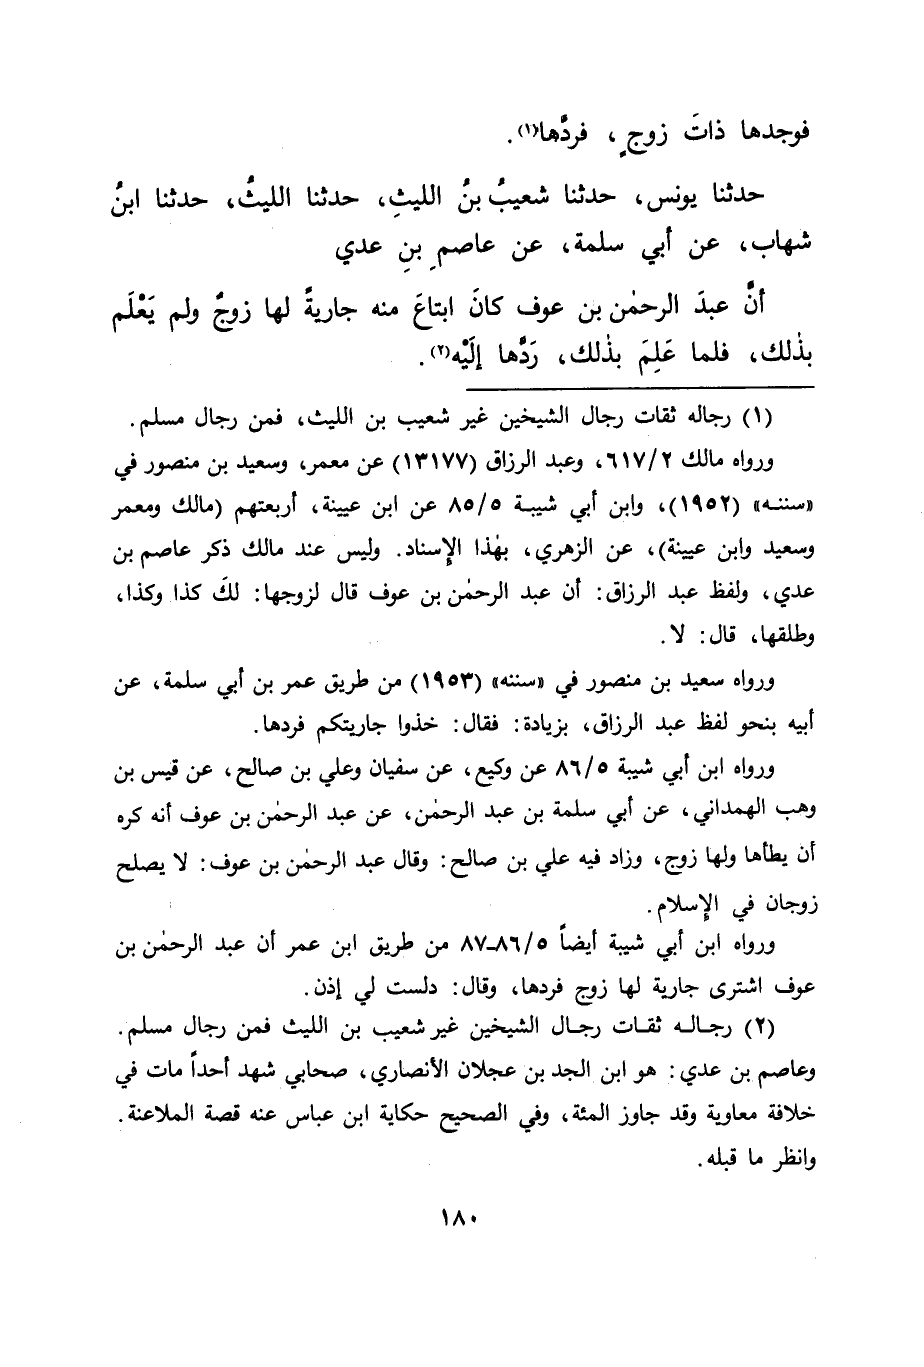 فوجدها ذاتَ زوجٍ، فردَّها(١).
حدثنا يونس، حدثنا شعيبُ بنُ الليثِ، حدثنا الليثُ، حدثنا ابنُ
شهاب، عن أبي سلمة، عن عاصمِ بنِ عدي
أنَّ عبدَ الرحمٰن بن عوف كانَ ابتاعَ منه جاريةً لها زوجٌ ولم يَعْلَم
بذٰلك، فلما عَلِمَ بذٰلك، رَدَّها إلَيْه(٢).
(١) رجاله ثقات رجال الشيخين غير شعيب بن الليث، فمن رجال مسلم.
ورواه مالك ٦١٧/٢، وعبد الرزاق (١٣١٧٧) عن معمر، وسعيد بن منصور في
«سننه» (١٩٥٢)، وابن أبي شيبة ٨٥/٥ عن ابن عيينة، أربعتهم (مالك ومعمر
وسعيد وابن عيينة)، عن الزهري، بهٰذا الإسناد. وليس عند مالك ذكر عاصم بن
عدي، ولفظ عبد الرزاق: أن عبد الرحمٰن بن عوف قال لزوجها: لكَ كذا وكذا،
وطلقها، قال: لا.
ورواه سعيد بن منصور في «سننه» (١٩٥٣) من طريق عمر بن أبي سلمة، عن
أبيه بنحو لفظ عبد الرزاق، بزيادة: فقال: خذوا جاريتكم فردها.
ورواه ابن أبي شيبة ٨٦/٥ عن وكيع، عن سفيان وعلي بن صالح، عن قيس بن
وهب الهمداني، عن أبي سلمة بن عبد الرحمٰن، عن عبد الرحمٰن بن عوف أنه كره
أن يطأها ولها زوج، وزاد فيه علي بن صالح: وقال عبد الرحمٰن بن عوف: لا يصلح
زوجان في الإسلام.
ورواه ابن أبي شيبة أيضاً ٨٦/٥-٨٧ من طريق ابن عمر أن عبد الرحمٰن بن
عوف اشترى جارية لها زوج فردها، وقال: دلست لي إذن.
(٢) رجاله ثقات رجال الشيخين غير شعيب بن الليث فمن رجال مسلم.
وعاصم بن عدي: هو ابن الجد بن عجلان الأنصاري، صحابي شهد أحداً مات في
خلافة معاوية وقد جاوز المئة، وفي الصحيح حكاية ابن عباس عنه قصة الملاعنة.
وانظر ما قبله.
١٨٠